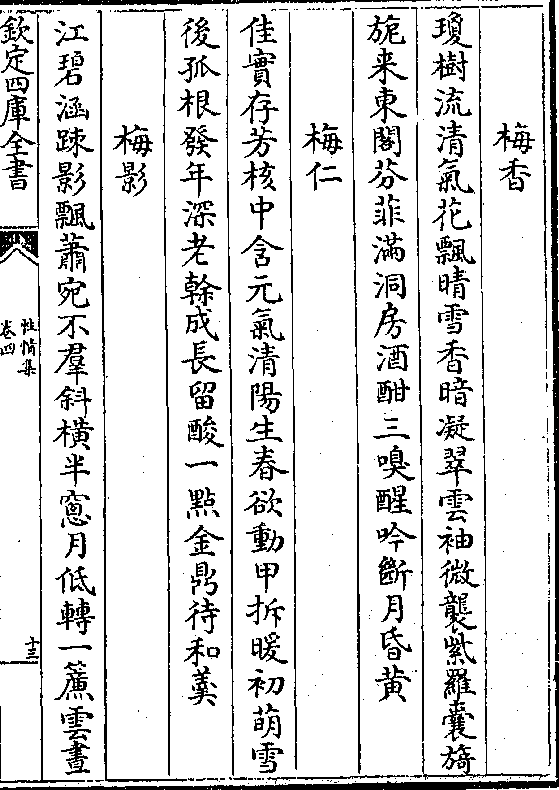 梅香
瓊樹流清氣花飄晴雪香暗凝翠雲袖微襲紫羅囊旖
旎来東閣芬菲滿洞房酒酣三嗅醒吟斷月昏黄
梅仁
佳實存芳核中含元氣清陽生春欲動甲拆暖初萌雪
後孤根發年深老榦成長留酸一點金鼎待和羮
梅影
江碧涵踈影飄蕭宛不羣斜横半窻月低轉一簾雲晝
欽定四庫全書
性情集
卷四
十三